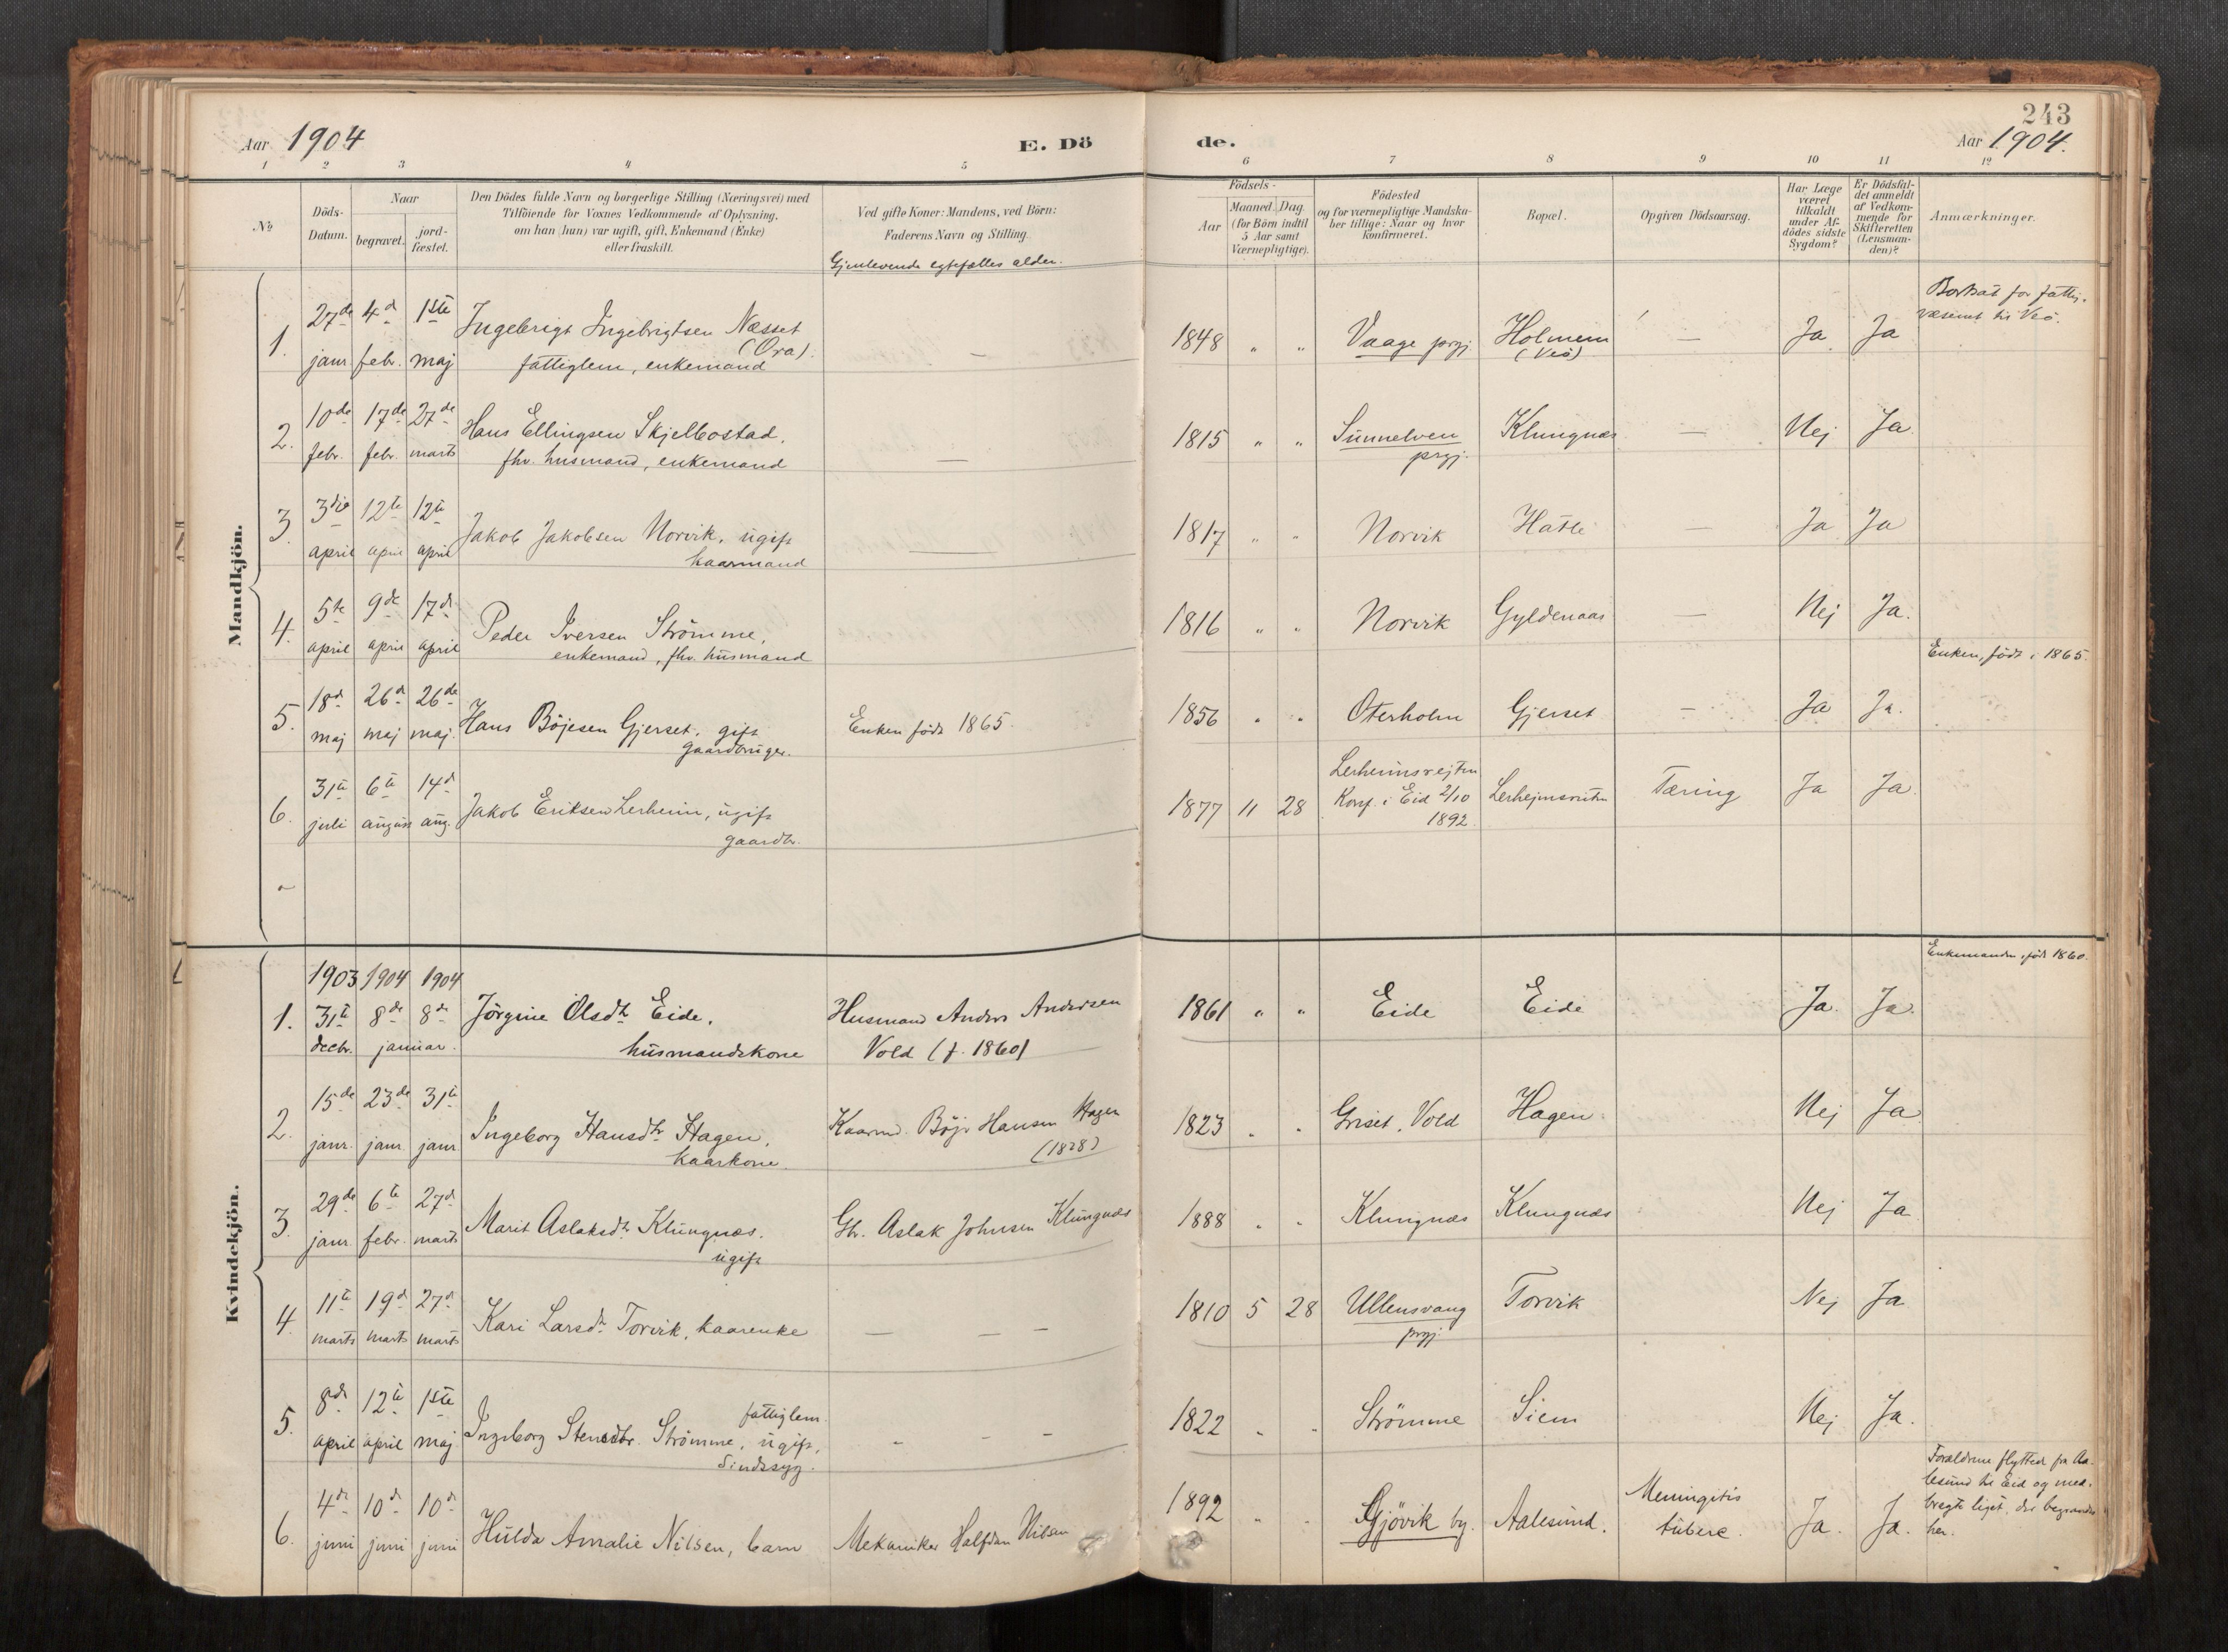 243
Aar 1904
E. Döde.
Aar 1904.
1 2 3 4 5 6 7 8 9 10 11 12
No
Döds-Datum.
Naar
begravet.
jordfæstet.
Den Dödes fulde Navn og borgerlige Stilling (Næringsvei) med
Tilföiende for Voxnes Vedkommende af Oplysning,
om han (hun) var ugift, gift, Enkemand (Enke)
eller fraskilt.
Ved gifte Koner: Mandens, ved Börn:
Faderens Navn og Stilling.
Gjenlevende egtefælles alder.
Födsels-
Aar
Maaned Dag
(for Börn indtil
5 Aar samt
Værnepligtige).
Födested
og for værnepligtige Mandska-
ber tillige: Naar og hvor
konfirmeret.
Bopæl.
Opgiven Dödsaarsag.
Har Læge
været
tilkaldt
under Af-
dödes sidste
Sygdom?
Er Dödsfal-
det anmeldt
af Vedkom-
mende for
Skifteretten
(Lensman-
den)?
Anmærkninger.
Mandkjön.
1. 27de janr. 4d febr. 1ste maj
Ingebrigt Ingebrigtsen Næsset
(Øra).
fattiglem, enkemand
—
1848 " " Vaage prgj. Holmem
(Veö)
— Ja Ja
Bortsat for fattig-
væsenet til Veö.
2. 10de febr. 17de febr. 27de marts
Hans Ellingsen Skjelbostad,
fhv. husmand, enkemand
—
1815 " " Sunnelven
prgj.
Klungnæs — Nej Ja
3. 3die april 12te april 12te april
Jakob Jakobsen Norvik, ugift
kaarmand
—
1817 " " Norvik Hatle — Ja Ja
4. 5te april 9de april 17de april
Peder Iversen Strömme,
enkemand, fhv. husmand
1816 " " Norvik Gyldenaas — Nej Ja.
Enken, födt i 1865.
5. 18d maj 26d maj 26de maj.
Hans Böjesen Gjerset, gift
gaardbruger.
Enken födt 1865.
1856 " " Oterholm Gjerset — Ja Ja.
6. 31te juli 6te august 14d aug.
Jakob Eriksen Lerheim, ugift
gaardbr.
1877 11 28
Konf. i Eid 2/10
1892.
Tæring Ja Ja.
Kvindekjön.
1903 1904 1904
Enkemanden, födt 1860.
1. 31te decbr. 8de 8de januar.
Jörgine Olsdtr Eide,
husmandskone
Husmand Anders Andersen
Vold (f. 1860)
1861 " " Eide Eide Ja. Ja.
2. 15de janr. 23de janr. 31te janr
Ingeborg Hansdtr Hagen,
kaarkone.
Kaarmd. Böje Hansen Hagen
(1828)
1823 " " Griset, Vold Hagen Nej Ja
3. 29de janr. 6te febr. 27d marts
Marit Aslaksdtr Klungnæs,
ugift
Gbr. Aslak Johnsen Klungnæs
1888 " " Klungnæs Klungnæs Nej Ja
4. 11te marts 19d marts 27d marts
Kari Larsdtr Torvik, kaarenke
— — —
1810 5 28 Ullensvang
prgj.
Torvik Nej Ja
5. 8de april 12te april 1ste maj.
fattiglem.
Ingeborg Stensdtr. Strömme, ugift,
Sindssyg.
- - -
1822 " " Strömme Siem Nej Ja.
6. 4de juni 10d juni 10d juni
Hulda Amalie Nilsen, barn
Mekaniker Halfdan Nilsen
1892 " " Gjövik by. Aalesund.
Meningitis
tuberc.
Ja. Ja.
Forældrene flyttede fra Aa-
lesund til Eid og med-
bragte liget, der begravedes
her.